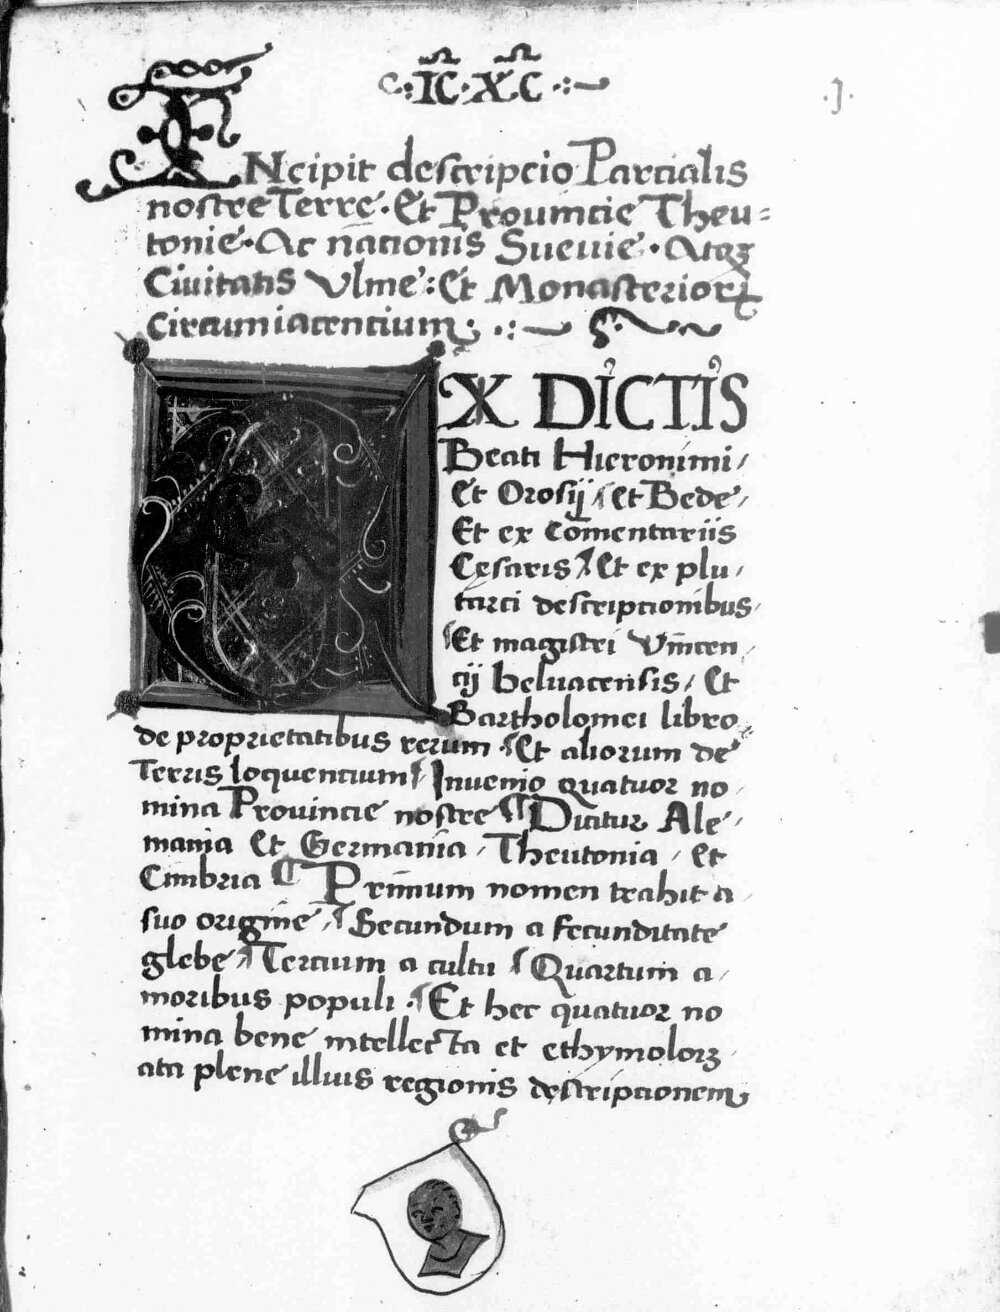 ·:IC·XC·:~
·J·
INcipit descripcio Parcialis
nostre Terre·Et Prouincie Theu=
tonie·Ac nacionis Sueuie·Atqꝫ
Ciuitatis Vlme:Et Monasterioꝝ
circumiacencium
EX DICTIS
Beati Hieronimi/
et Orosij et Bede/
Et ex Cōmentariis
Cesaris Et ex plu/
tarci descripcionibus
Et magistri Vincen
cij beluacensis/ Et
Bartholomei libro
de proprietatibus rerum Et aliorum de
Terris loquencium Inuenio quatuor no
mina Prouincie nostre Dicitur Ale/
mania et Germania/Theutonia/et
Cimbria Primum nomen trahit a
suo origine/Secundum a fecunditate
glebe Tercium a cultu Quartum a/
moribus populi·Et hec quatuor no
mina bene intellecta et ethymoloiꝫ
ata plene illius regionis descripcionem